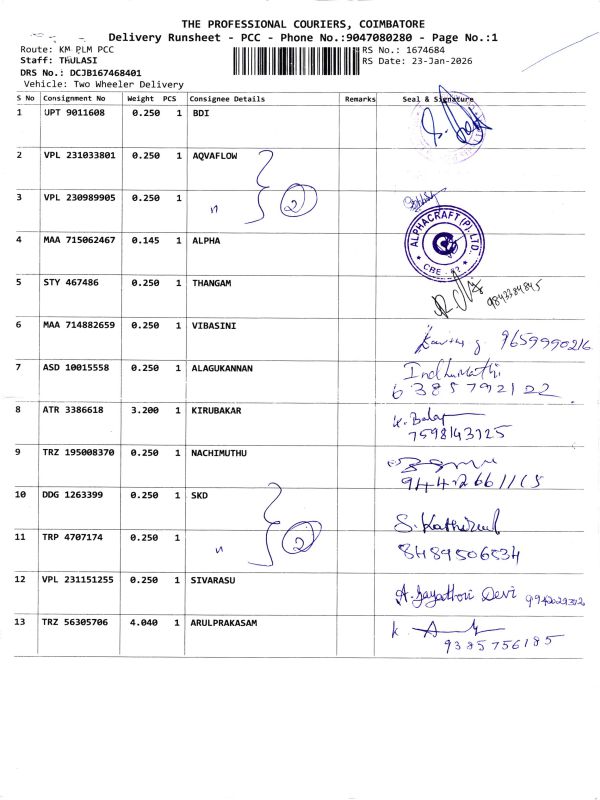 THE PROFESSIONAL COURIERS, COIMBATORE
Delivery Runsheet - PCC - Phone No.:9047080280 - Page No.:1
Route: KM PLM PCC RS No.: 1674684
Staff: THULASI RS Date: 23-Jan-2026
DRS No.: DCJB167468401
Vehicle: Two Wheeler Delivery
S No Consignment No Weight PCS Consignee Details Remarks Seal & Signature
1 UPT 9011608 0.250 1 BDI
2 VPL 231033801 0.250 1 AQVAFLOW
3 VPL 230989905 0.250 1 〃 2
4 MAA 715062467 0.145 1 ALPHA ALPHACRAFT (P) LTD. CBE
5 STY 467486 0.250 1 THANGAM 9843384845
6 MAA 714882659 0.250 1 VIBASINI 9659990216
7 ASD 10015558 0.250 1 ALAGUKANNAN Indhumathi
6385792122
8 ATR 3386618 3.200 1 KIRUBAKAR K. Balaji
7598143725
9 TRZ 195008370 0.250 1 NACHIMUTHU
9442661115
10 DDG 1263399 0.250 1 SKD S. Kathirvel
11 TRP 4707174 0.250 1 〃 2 8489506534
12 VPL 231151255 0.250 1 SIVARASU A. Gayathori Devi
13 TRZ 56305706 4.040 1 ARULPRAKASAM K.
9385756185